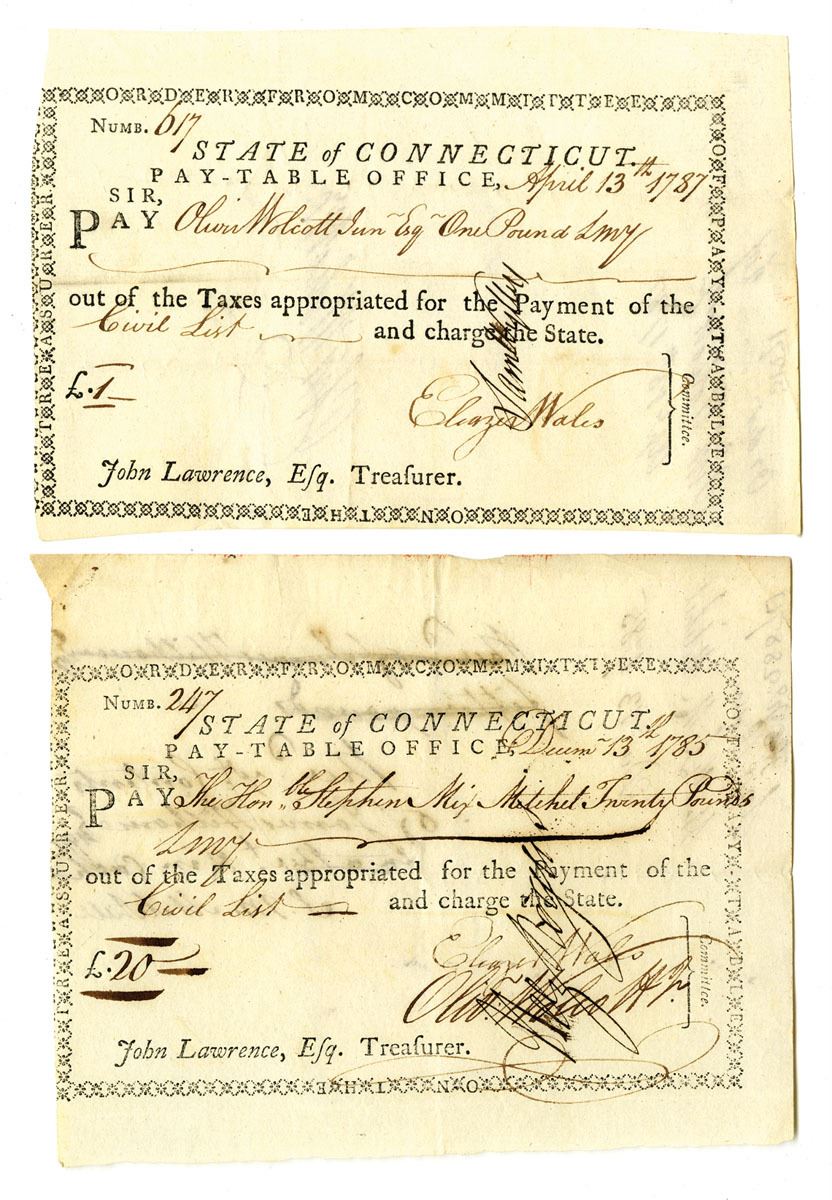 ORDER FROM COMMITTEE
OF PAY-TABLE
ON THE
TREASURER
NUMB. 617
STATE of CONNECTICUT.
PAY-TABLE OFFICE, April 13th 1787
SIR,
PAY Oliver Wolcott Junr Esqr One Pound LMy
out of the Taxes appropriated for the Payment of the
Civil List and charge the State.
£.1
Eleazer Wales
Committee.
John Lawrence, Esq. Treaſurer.
ORDER FROM COMMITTEE
OF PAY-TABLE
ON THE
TREASURER
NUMB. 247
STATE of CONNECTICUT.
PAY-TABLE OFFICE, Decemr 13th 1785
SIR,
PAY The Honble Stephen Mix Mitchel Twenty Pounds
LMy
out of the Taxes appropriated for the Payment of the
Civil List and charge the State.
£.20
Eleazer Wales
Committee.
John Lawrence, Eſq. Treaſurer.